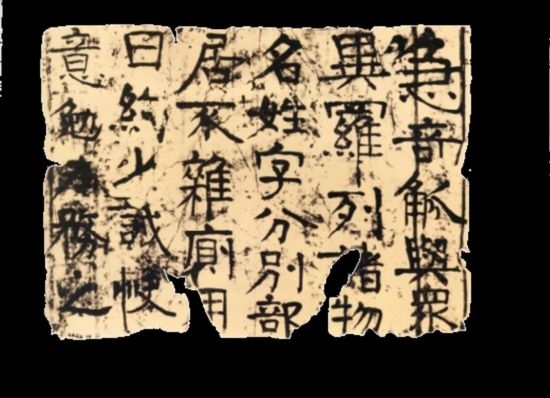 急奇觚與眾
異羅列諸物
名姓字分別部
居不雜廁用
日約少誠快
意勉力務之